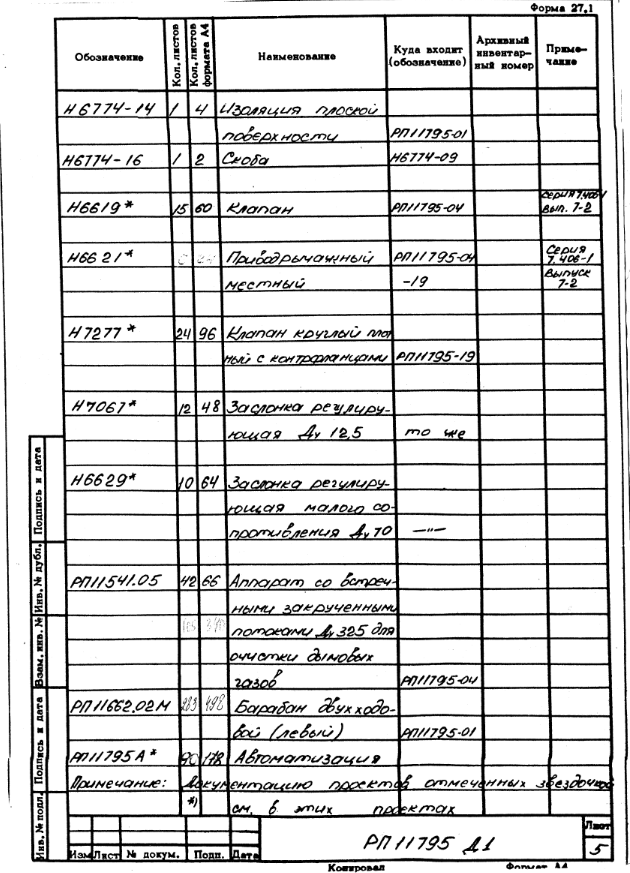 Форма 27.1
Обозначение | Кол. листов | Кол. листов формата А4 | Наименование | Куда входит (обозначение) | Архивный инвентарный номер | Примечание
Н6774-14 | 1 | 4 | Изоляция плоской
поверхности | РП11795-01
Н6774-16 | 1 | 2 | Скоба | Н6774-09
Н6619* | 15 | 60 | Клапан | РП11795-04 | Серия 7.406-1 Вып. 7-2
Н6621* | Привод рычажный | РП11795-04 | Серия 7.406-1
местный | -19 | Выпуск 7-2
Н7277* | 24 | 96 | Клапан круглый плот
ный с контрфланцами | РП11795-19
Н7067* | 12 | 48 | Заслонка регулиру-
ющая Ду 12,5 | то же
Н6629* | 10 | 64 | Заслонка регулиру-
ющая малого со-
противления Ду 70 | —"—
РП11541.05 | 42 | 66 | Аппарат со встреч-
ными закрученными
потоками Ду 325 для
очистки дымовых
газов | РП11795-04
РП11662.02М | 283 | 498 | Барабан двухходо-
вой (левый) | РП11795-01
РП11795А* | 90 | 178 | Автоматизация
Примечание: Документацию проектов отмеченных звездочкой
*) см. в этих проектах
Подпись и дата
Инв. № дубл.
Взам. инв. №
Подпись и дата
Инв. № подл.
Изм Лист № докум. Подп. Дата
РП11795 Д1
Лист
5
Копировал
Формат А4